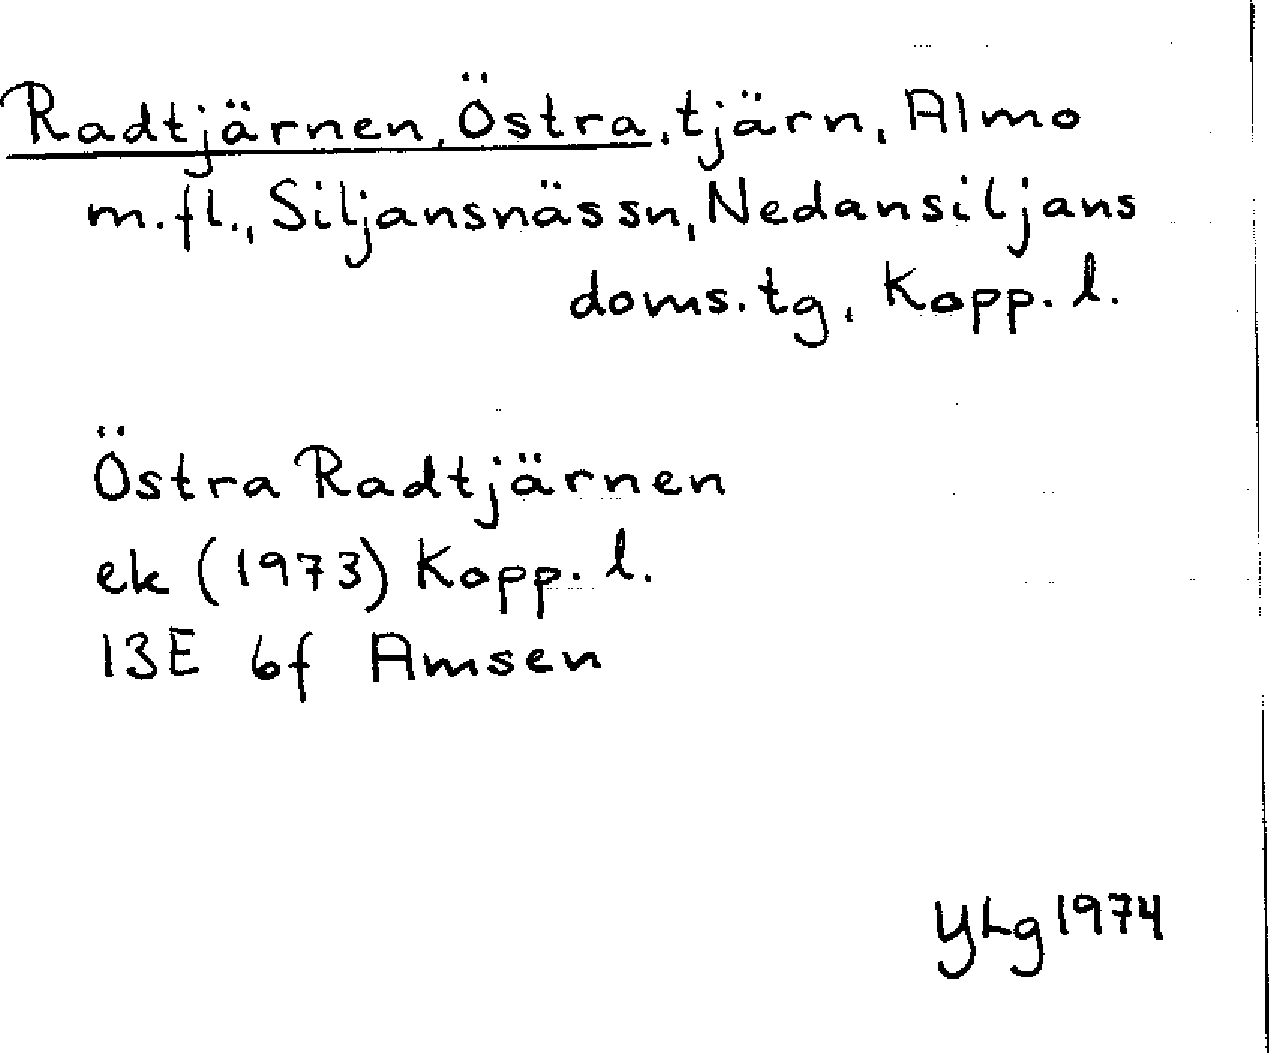 Radtjärnen, Östra, tjärn, Almo
m.fl., Siljansnäs sn, Nedansiljans
doms.tg, Kopp. l.
Östra Radtjärnen
ek (1973) Kopp. l.
13E 6f Amsen
YLg 1974